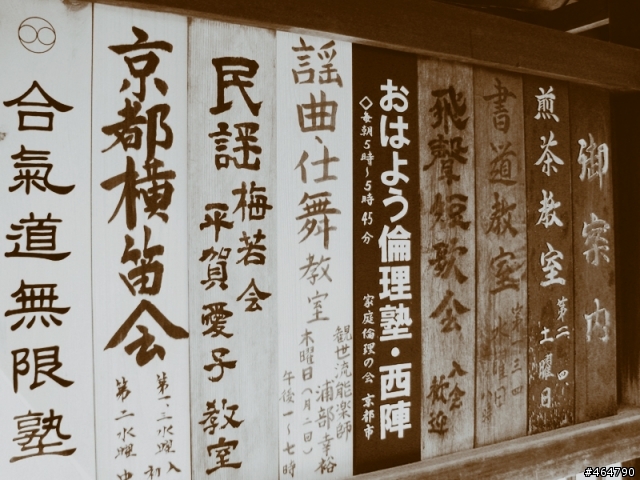 御案内
煎茶教室
第二・四
土曜日
書道教室
第一三四
水曜日
飛聲短歌会
入会
歓迎
おはよう倫理塾・西陣
◇毎朝5時〜5時45分
家庭倫理の会 京都市
謡曲・仕舞教室
観世流能楽師
浦部幸裕
木曜日(月二回)
午後一〜七時
民謡
梅若会
平賀愛子
教室
京都横笛会
第一三水曜
第二水曜
合氣道無限塾
#464790